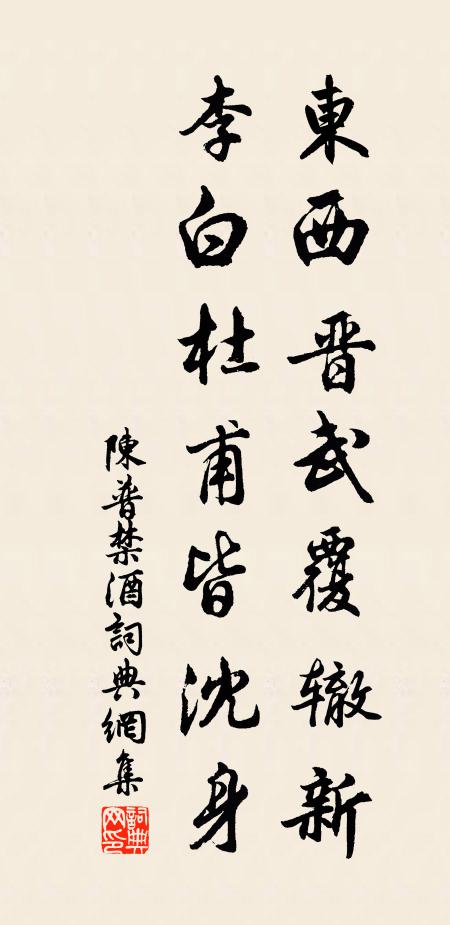 東西晋武覆辙新
李白杜甫皆沈身
陳普禁酒詞典網集
詞典网印